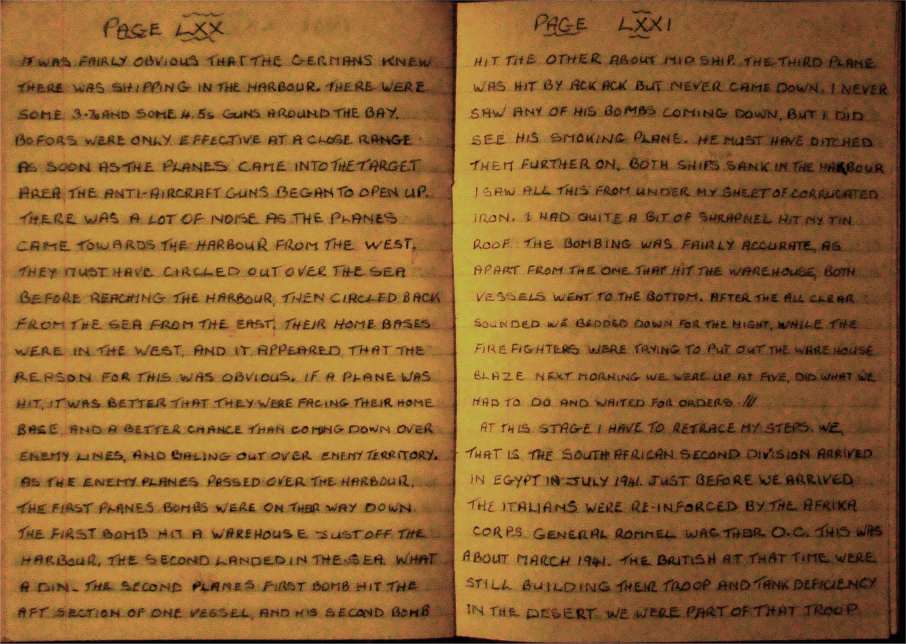 PAGE LXX
IT WAS FAIRLY OBVIOUS THAT THE GERMANS KNEW
THERE WAS SHIPPING IN THE HARBOUR. THERE WERE
SOME 3.7s AND SOME 4.5s GUNS AROUND THE BAY.
BOFORS WERE ONLY EFFECTIVE AT A CLOSE RANGE.
AS SOON AS THE PLANES CAME INTO THE TARGET
AREA THE ANTI-AIRCRAFT GUNS BEGAN TO OPEN UP.
THERE WAS A LOT OF NOISE AS THE PLANES
CAME TOWARDS THE HARBOUR FROM THE WEST.
THEY MUST HAVE CIRCLED OUT OVER THE SEA
BEFORE REACHING THE HARBOUR, THEN CIRCLED BACK
FROM THE SEA FROM THE EAST. THEIR HOME BASES
WERE IN THE WEST, AND IT APPEARED THAT THE
REASON FOR THIS WAS OBVIOUS. IF A PLANE WAS
HIT, IT WAS BETTER THAT THEY WERE FACING THEIR HOME
BASE, AND A BETTER CHANCE THAN COMING DOWN OVER
ENEMY LINES, AND BIALING OUT OVER ENEMY TERRITORY.
AS THE ENEMY PLANES PASSED OVER THE HARBOUR,
THE FIRST PLANES BOMBS WERE ON THER WAY DOWN
THE FIRST BOMB HIT A WAREHOUSE JUST OFF THE
HARBOUR, THE SECOND LANDED IN THE SEA. WHAT
A DIN. THE SECOND PLANES FIRST BOMB HIT THE
AFT SECTION OF ONE VESSEL, AND HIS SECOND BOMB
PAGE LXXI
HIT THE OTHER ABOUT MID SHIP. THE THIRD PLANE
WAS HIT BY ACK ACK BUT NEVER CAME DOWN. I NEVER
SAW ANY OF HIS BOMBS COMING DOWN, BUT I DID
SEE HIS SMOKING PLANE. HE MUST HAVE DITCHED
THEM FURTHER ON. BOTH SHIPS SANK IN THE HARBOUR
I SAW ALL THIS FROM UNDER MY SHEET OF CORRUGATED
IRON. I HAD QUITE A BIT OF SHRAPNEL HIT MY TIN
ROOF. THE BOMBING WAS FAIRLY ACCURATE, AS
APART FROM THE ONE THAT HIT THE WAREHOUSE, BOTH
VESSELS WENT TO THE BOTTOM. AFTER THE ALL CLEAR
SOUNDED WE BEDDED DOWN FOR THE NIGHT, WHILE THE
FIREFIGHTERS WERE TRYING TO PUT OUT THE WAREHOUSE
BLAZE NEXT MORNING WE WERE UP AT FIVE, DID WHAT WE
HAD TO DO AND WAITED FOR ORDERS. ///
AT THIS STAGE I HAVE TO RETRACE MY STEPS. WE,
THAT IS THE SOUTH AFRICAN SECOND DIVISION ARRIVED
IN EGYPT IN JULY 1941. JUST BEFORE WE ARRIVED
THE ITALIANS WERE RE-INFORCED BY THE AFRIKA
CORPS. GENERAL ROMMEL WAC THER O.C. THIS WAS
ABOUT MARCH 1941. THE BRITISH AT THAT TIME WERE
STILL BUILDING THEIR TROOP AND TANK DEFICIENCY
IN THE DESERT. WE WERE PART OF THAT TROOP